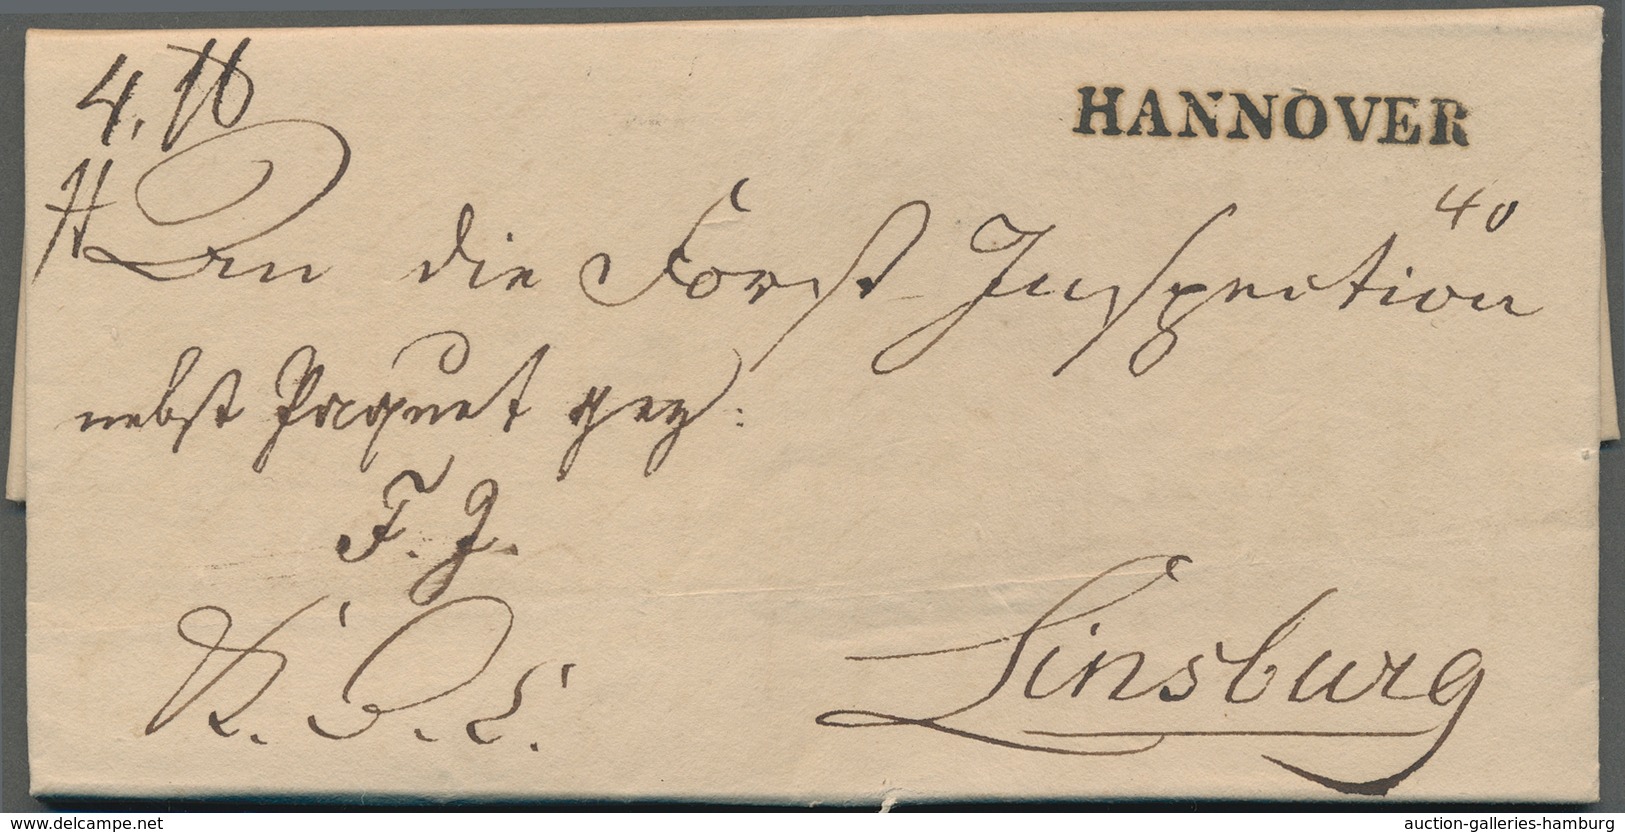 4. ℔
HANNOVER
40
An die Forst Inspection
nebst Paquet gez:
F. J.
Linsburg
www.delcampe.net
auction-galleries-hamburg